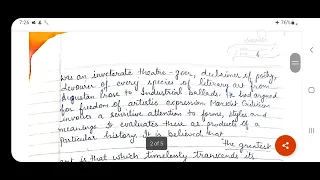 7:26
76%
was an inveterate theatre-goer, declaimer of poetry,
devourer of every species of literary art from
Augustan prose to Industrial ballads. He had argued
for freedom of artistic expression Marxist Criticism
involves a sensitive attention to forms, styles and
meanings. It evaluates these as products of a
particular history. It is believed that
"the greatest
2 of 5
art is that which timelessly transcends its